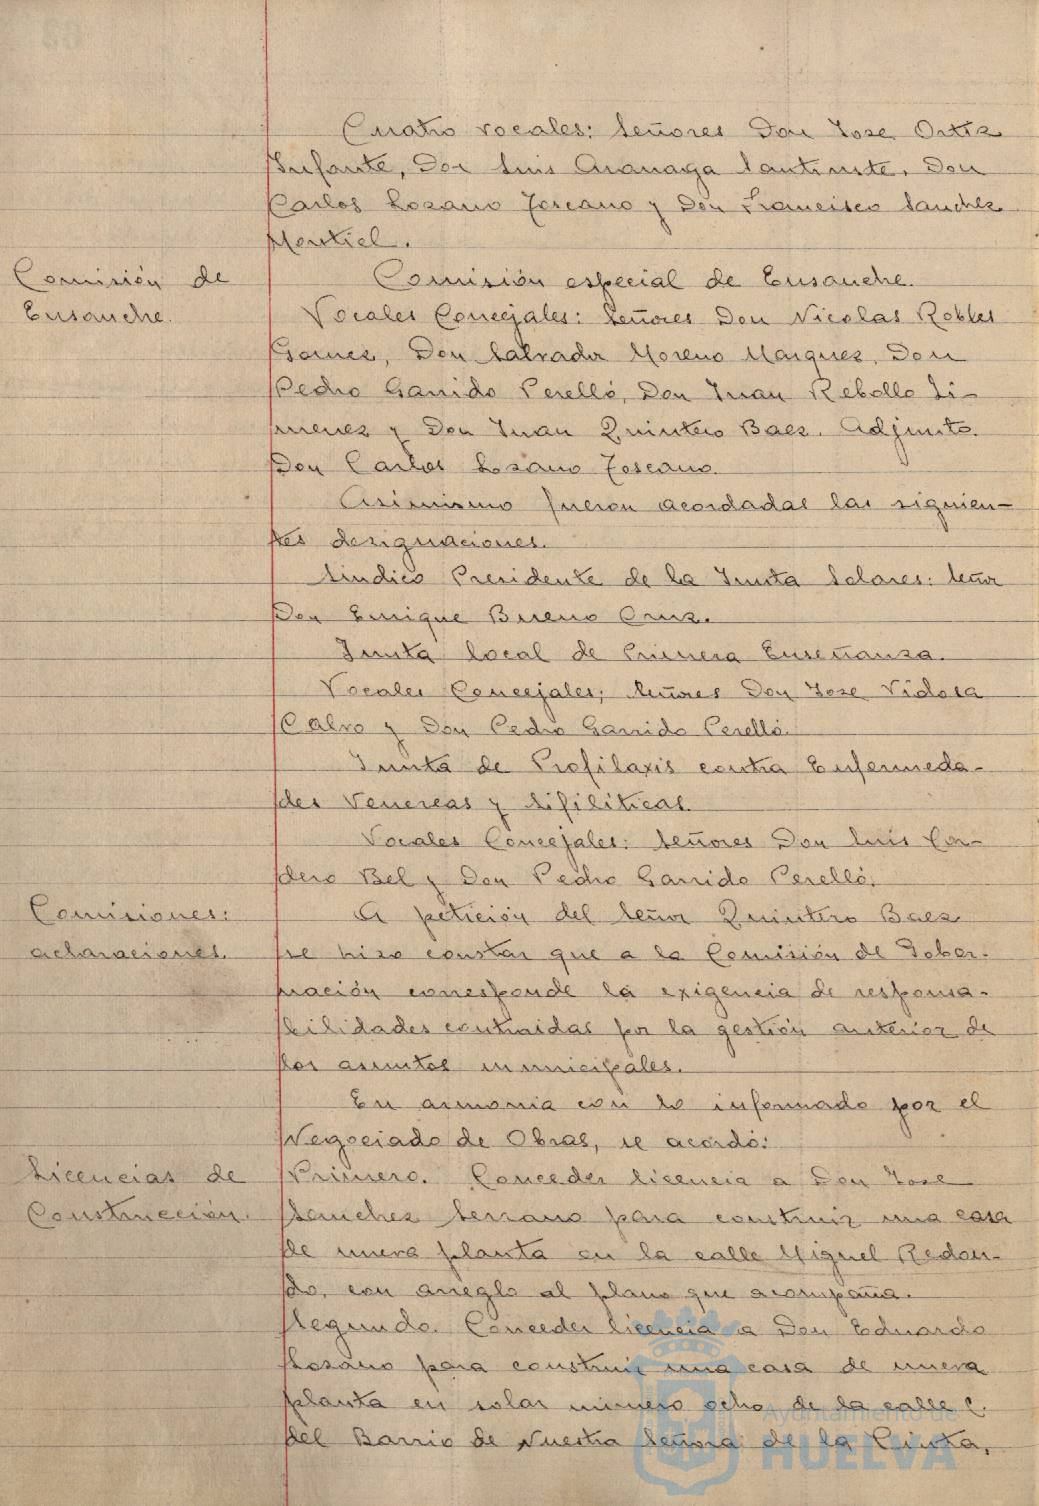 Cuatro vocales: Señores Don Jose Ortiz
Infante, Don Luis Aranaga Santurste, Don
Carlos Lozano Toscano y Don Francisco Sanchez
Montiel.
Comisión de
Ensanche.
Comisión especial de Ensanche.
Vocales Concejales: Señores Don Nicolas Robles
Gomez, Don Salvador Moreno Marquez, Don
Pedro Garrido Perelló, Don Juan Rebollo Ji-
menez y Don Juan Quintero Baez. Adjunto.
Don Carlos Lozano Toscano.
Asimismo fueron acordadas las siguien-
tes designaciones.
Sindico Presidente de la Junta Solares: Señor
Don Enrique Bueno Cruz.
Junta local de Primera Enseñanza.
Vocales Concejales; Señores Don Jose Vidosa
Calvo y Don Pedro Garrido Perelló.
Junta de Profilaxis contra Enfermeda-
des Venereas y Sifiliticas.
Vocales Concejales: Señores Don Luis Cor-
dero Bel y Don Pedro Garrido Perelló.
Comisiones:
aclaraciones.
A petición del Señor Quintero Baez
se hizo constar que a la Comisión de Gober-
nación corresponde la exigencia de responsa-
bilidades contraidas por la gestión anterior de
los asuntos municipales.
En armonia con lo informado por el
Negociado de Obras, se acordó:
Licencias de
Construcción.
Primero. Conceder licencia a Don Jose
Sanchez Serrano para construir una casa
de nueva planta en la calle Miguel Redon-
do, con arreglo al plano que acompaña.
Segundo. Conceder licencia a Don Eduardo
Lozano para construir una casa de nueva
planta en solar número ocho de la calle C.
del Barrio de Nuestra Señora de la Cinta,
Ayuntamiento de
HUELVA